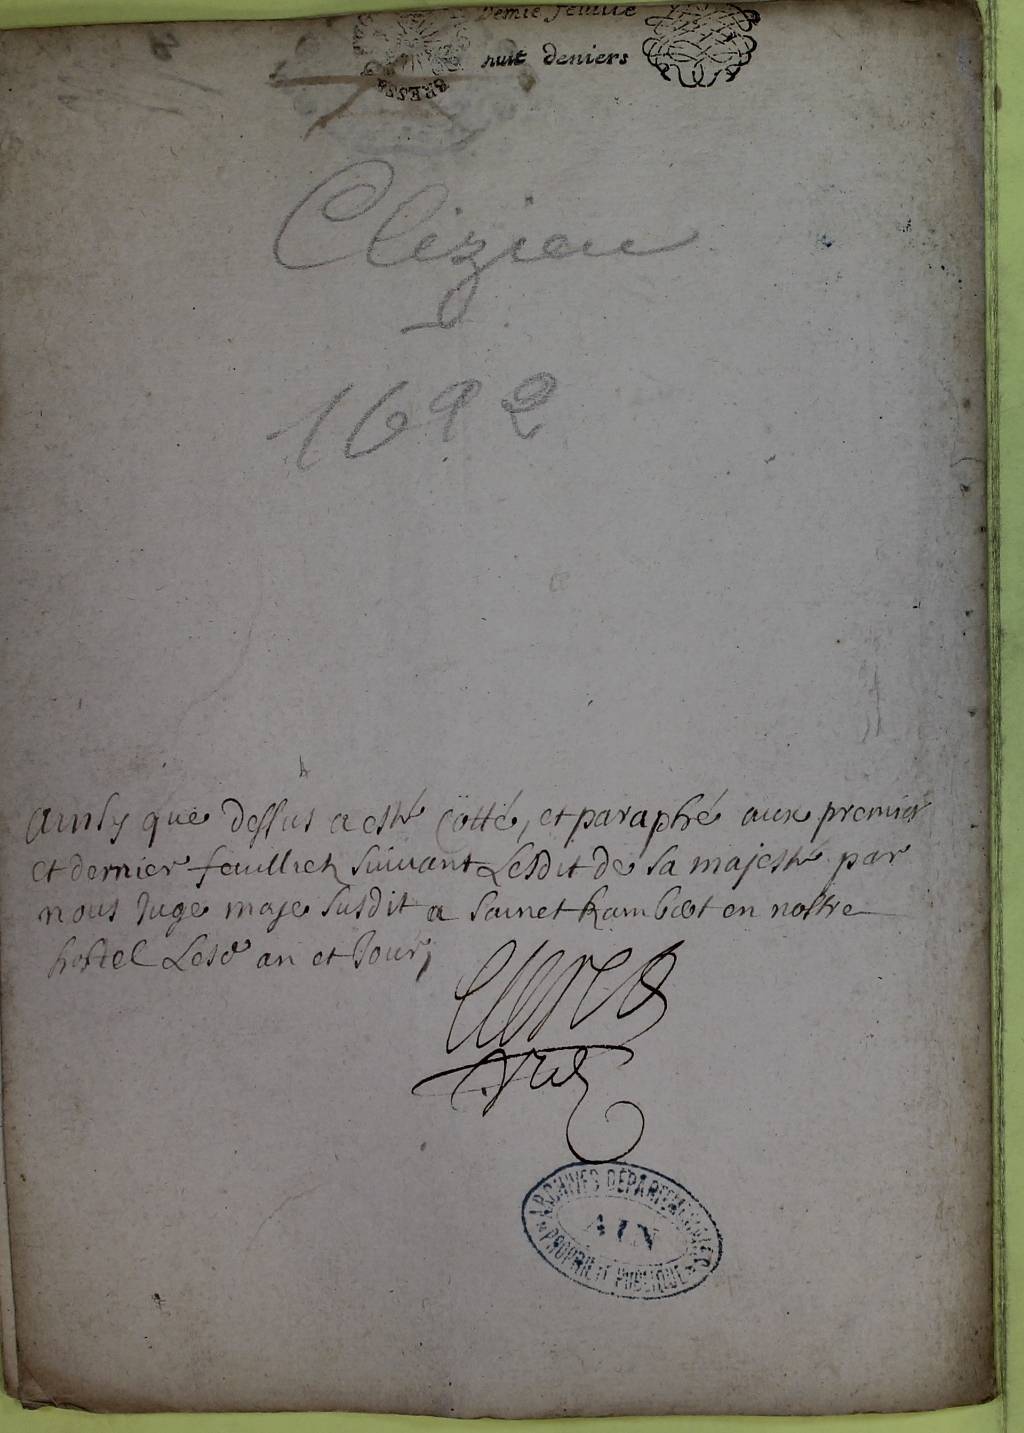 Demie feuille
huit deniers
BRESSE
Clezieu
1692
Ainsy que dessus a esté cotté, et paraphé aux premier
et dernier feuilliets suivant Lesdit de sa majesté par
nous Juge maje susdit a Sainct Rambert en nostre
hostel Lesd an et Jour,
ARCHIVES DÉPARTEMENTALES
AIN
PROPRIÉTÉ PUBLIQUE